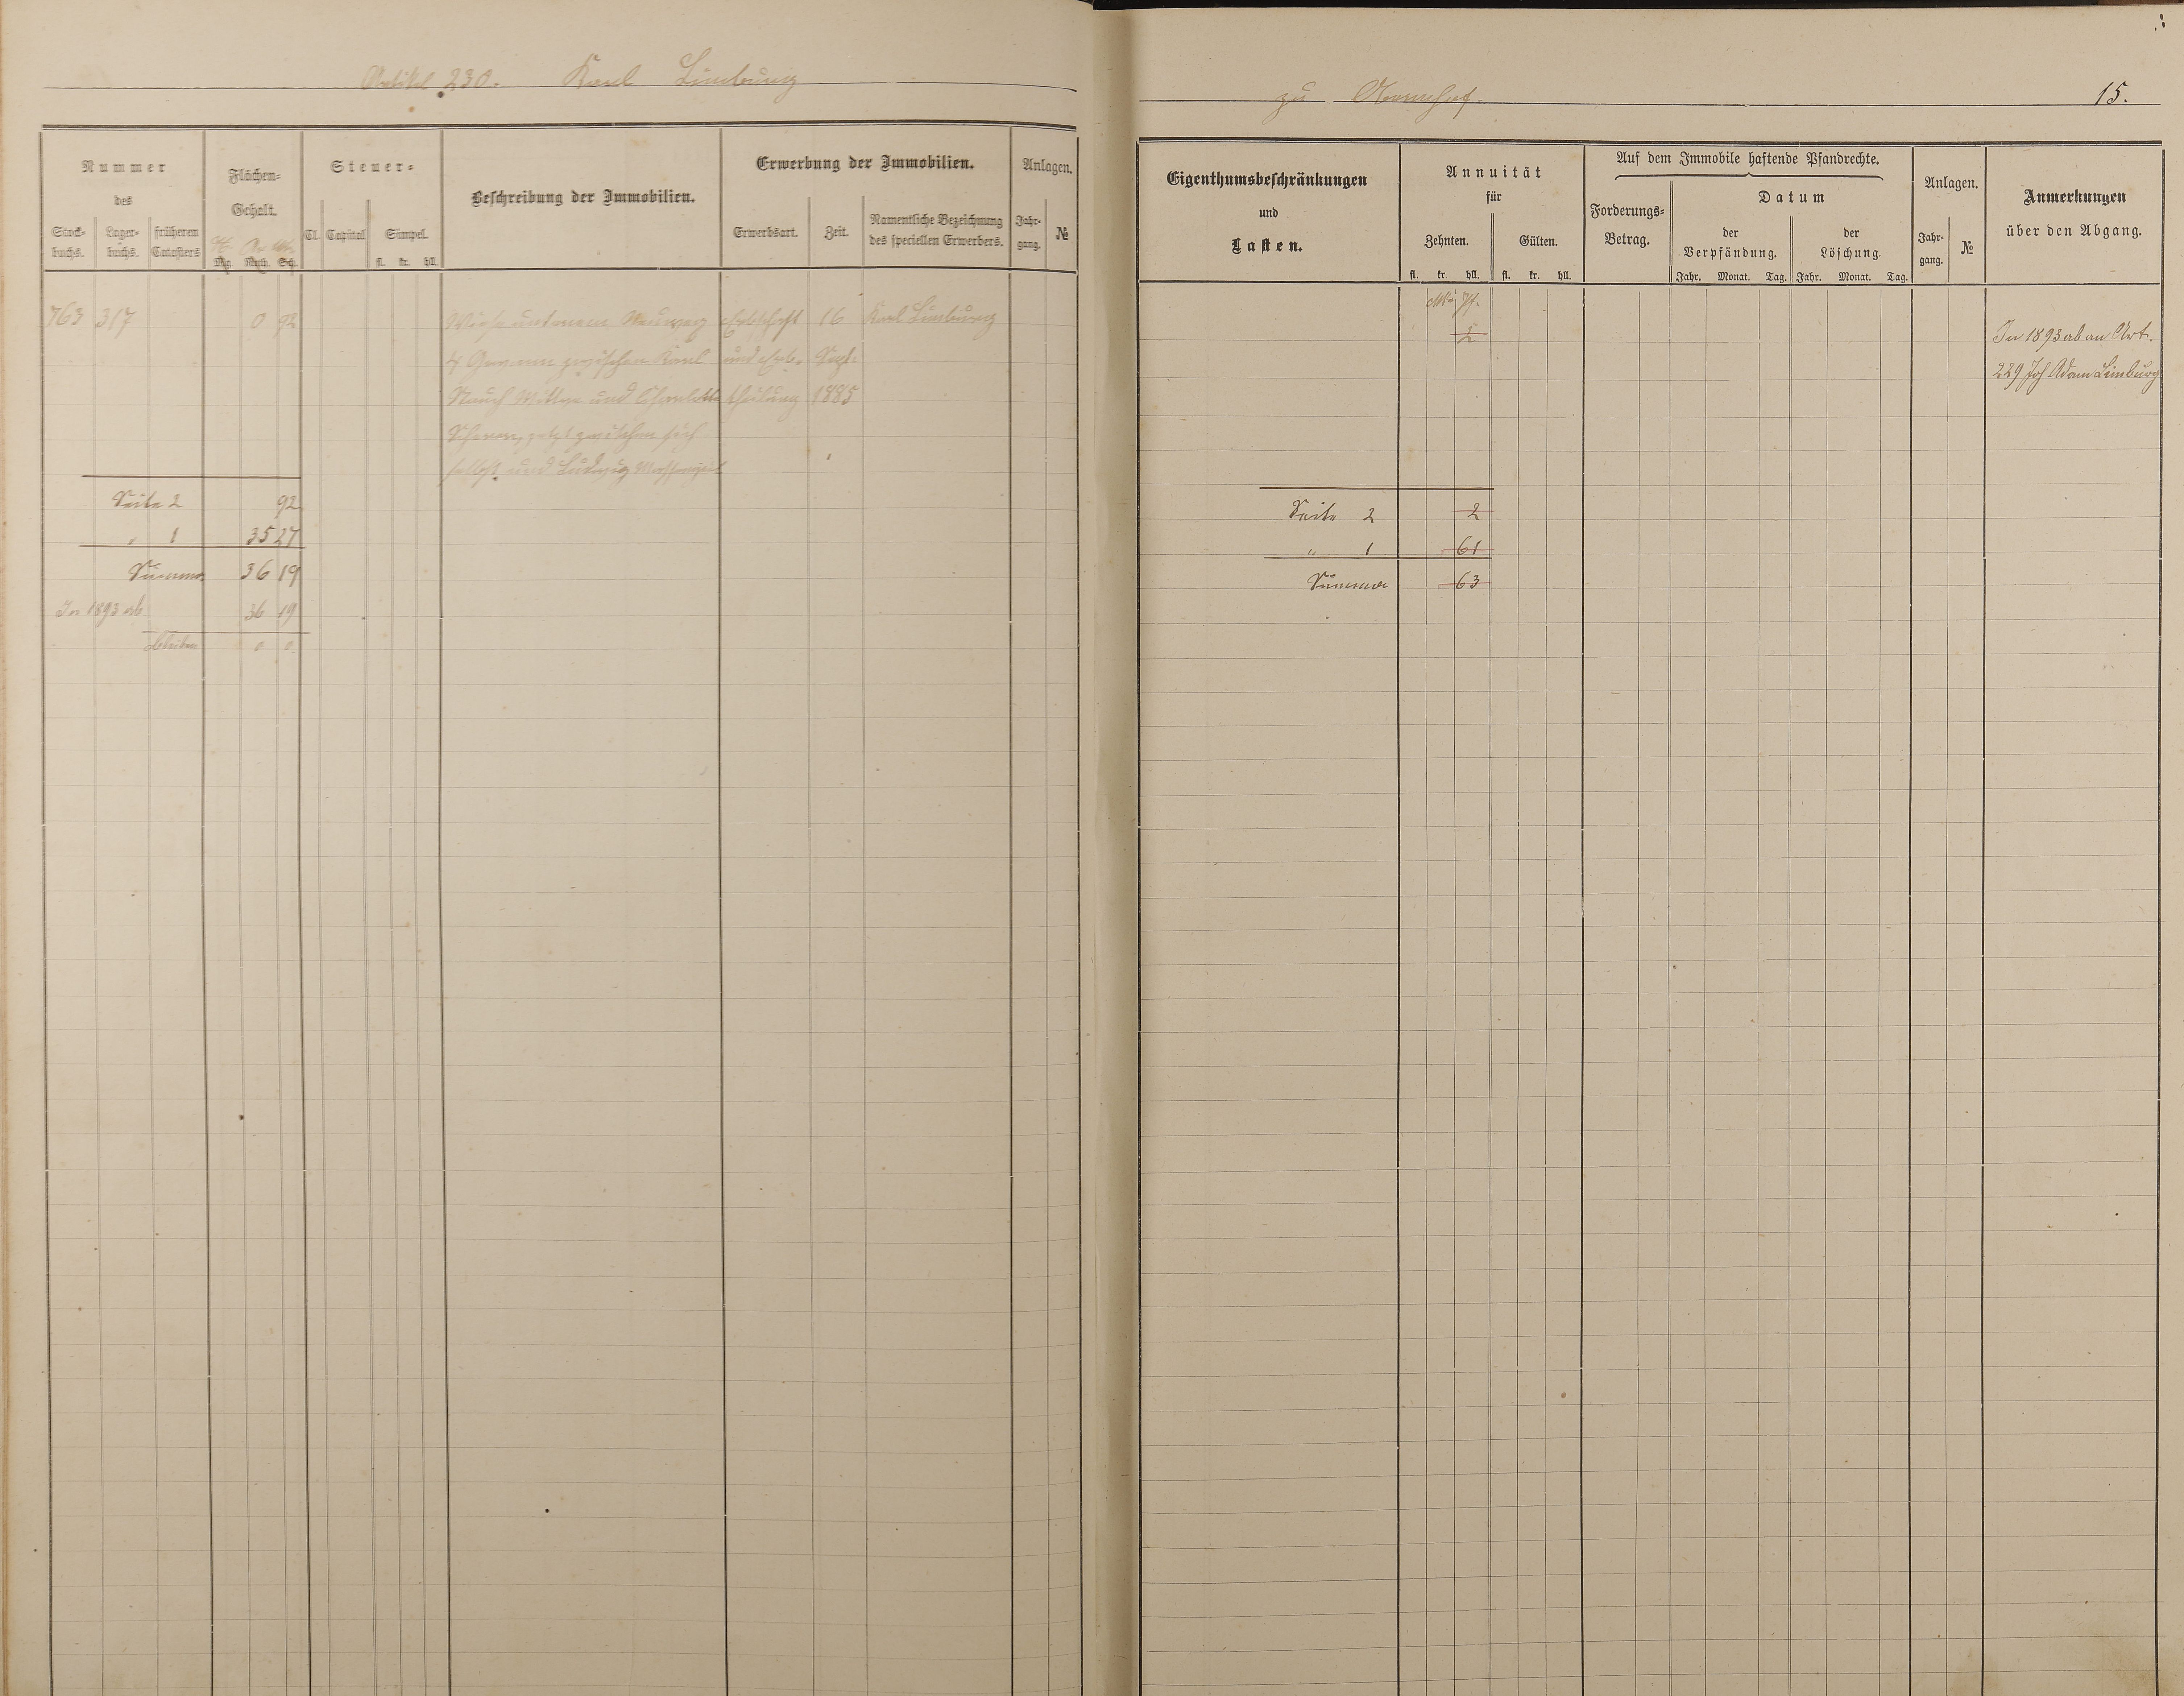 Artikel 230. Karl Limburg
zu
15.
Nummer
des
Stock-
buchs.
Lager-
buchs.
früheren
Catasters
Flächen-
Gehalt.
Mg. Ruth. Sch.
Steuer-
Cl. Capital Simpel.
fl. kr. hll.
Beschreibung der Immobilien.
Erwerbung der Immobilien.
Erwerbsart. Zeit.
Namentliche Bezeichnung
des speciellen Erwerbers.
Anlagen.
Jahr-
gang.
№
763 317 0 92 Wiese unterem Neuweg Erbschaft 16 Karl Limburg
4 Gewann zwischen Karl und Erb- Sept.
Wittwe und theilung 1885
jetzt zwischen sich
selbst und Ludwig
Seite 2 92
" 1 35 27
Summa 36 19
In 1893 ab 36 19
bleiben 0 0
Eigenthumsbeschränkungen
und
Lasten.
Annuität
für
Zehnten. Gülten.
fl. kr. hll. fl. kr. hll.
Auf dem Immobile haftende Pfandrechte.
Forderungs-
Betrag.
Datum
der
Verpfändung.
der
Löschung.
Jahr. Monat. Tag. Jahr. Monat. Tag.
Anlagen.
Jahr-
gang.
№
Anmerkungen
über den Abgang.
M. Pf.
2
In 1893 ab an Art.
229 Joh Adam Limburg
Seite 2 2
" 1 61
Summa 63